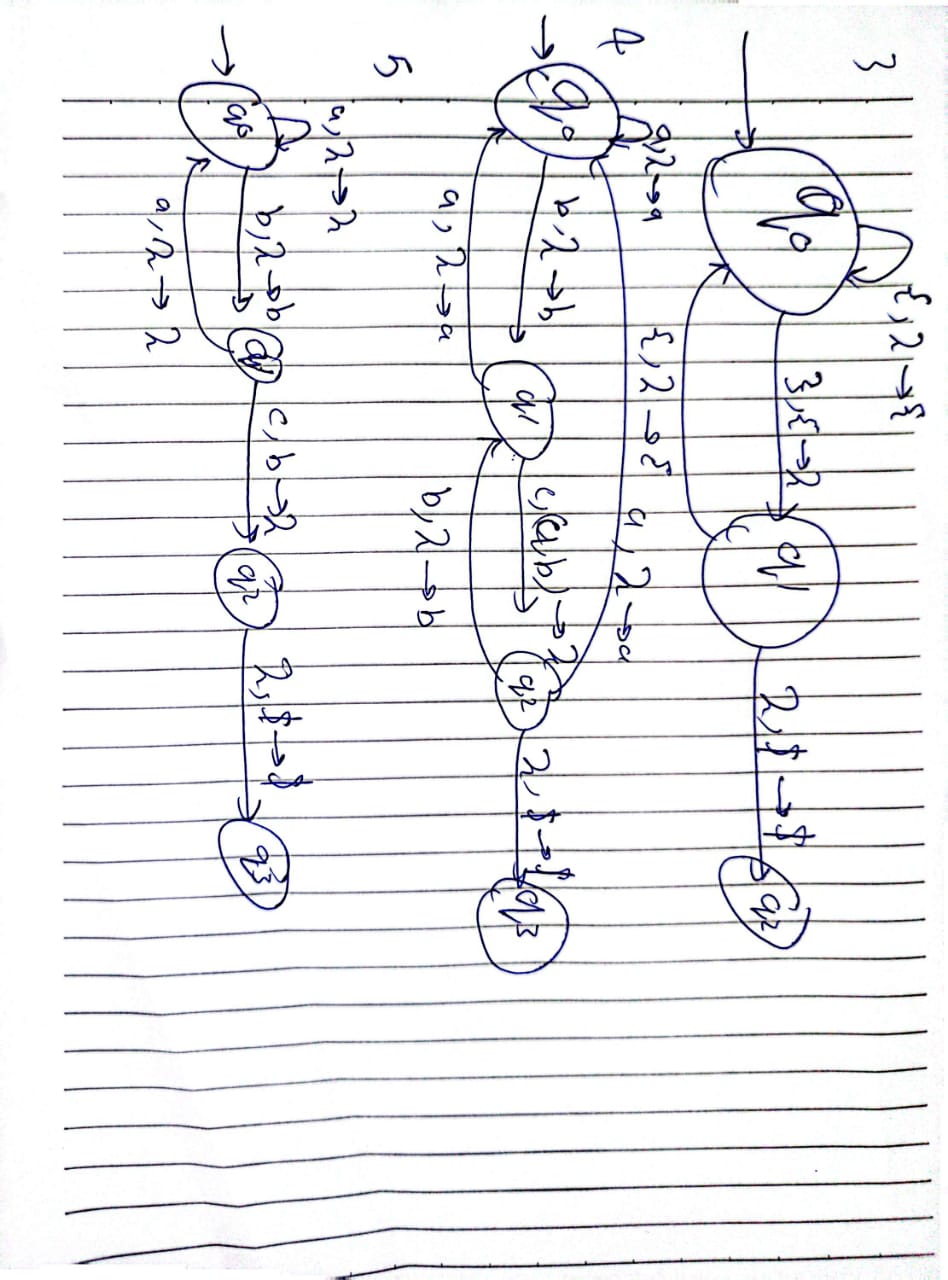 3
q0
{, λ → {
}, { → λ
{, λ → {
q1
λ, $ → $
q2
4
q0
a, λ → a
b, λ → b
a, λ → a
q1
c, (a,b) → λ
b, λ → b
a, λ → a
q2
λ, $ → $
q3
5
q0
a, λ → λ
b, λ → b
a, λ → λ
q1
c, b → λ
q2
λ, $ → $
q3